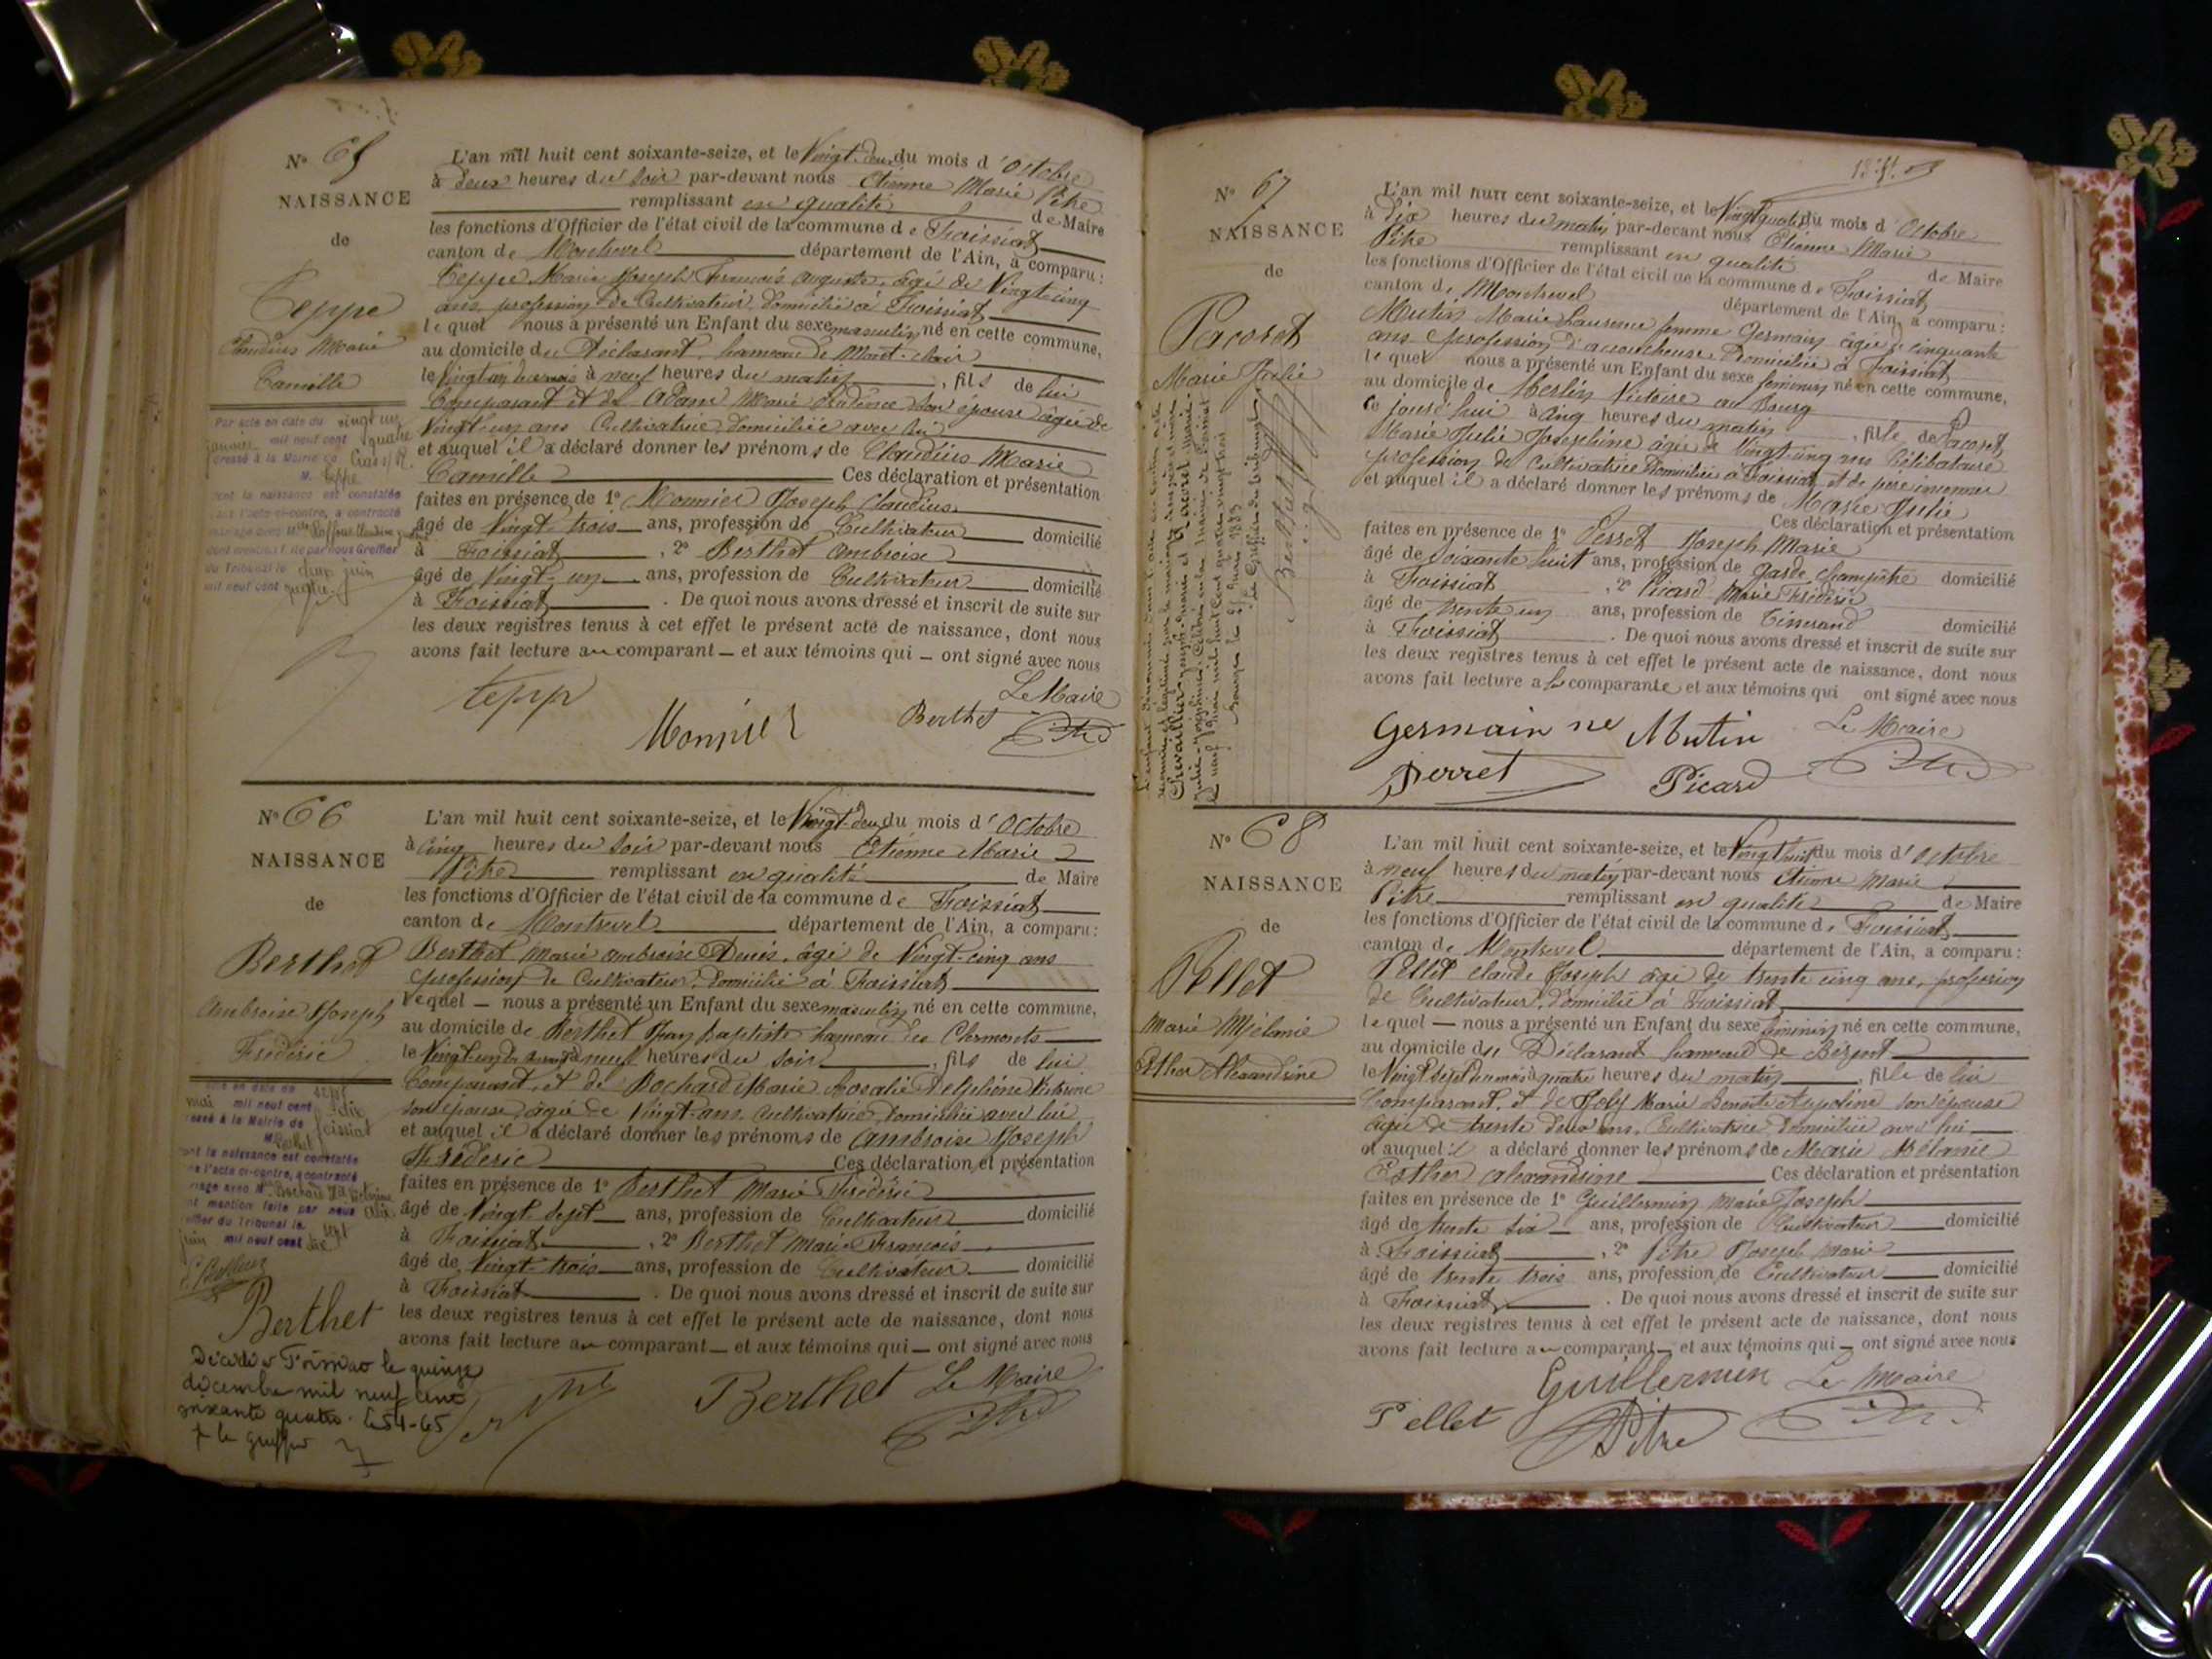 N° 65
NAISSANCE
de
Teppe
Claudius Marie
Camille
Par acte en date du vingt un
janvier mil neuf cent quatre
dressé à la Mairie de Cras s/R.
M. Teppe
dont la naissance est constatée
dans l'acte ci-contre, a contracté
mariage avec Mlle
du Tribunal le deux juin
mil neuf cent quatre.
L'an mil huit cent soixante-seize, et le Vingt-deux du mois d'Octobre
à deux heures du soir par-devant nous Etienne Marie Pitre
remplissant en qualité de Maire
les fonctions d'Officier de l'état civil de la commune de Foissiat
canton de Montrevel département de l'Ain, a comparu :
Teppe Marie Joseph François Auguste, âgé de Vingt-cinq
ans, profession de Cultivateur, domicilié à Foissiat
lequel nous a présenté un Enfant du sexe masculin né en cette commune,
au domicile du Déclarant, hameau de Mont-
le Vingt un du mois à neuf heures du matin, fils de lui
Comparant et de Adam Marie son épouse âgée de
Vingt-un ans Cultivatrice, domiciliée avec lui
et auquel il a déclaré donner les prénoms de Claudius Marie
Camille Ces déclaration et présentation
faites en présence de 1° Monnier Joseph Claudius
âgé de Vingt-trois ans, profession de Cultivateur domicilié
à Foissiat, 2° Berthet Ambroise
âgé de Vingt-un ans, profession de Cultivateur domicilié
à Foissiat. De quoi nous avons dressé et inscrit de suite sur
les deux registres tenus à cet effet le présent acte de naissance, dont nous
avons fait lecture au comparant – et aux témoins qui – ont signé avec nous
Le Maire
Tepp Monnier Berthet Pitre
N° 66
NAISSANCE
de
Berthet
Ambroise Joseph
Frédéric
acte en date du sept
mai mil neuf cent dix
dressé à la Mairie de Foissiat
M. Berthet
dont la naissance est constatée
dans l'acte ci-contre, a contracté
mariage avec Mlle Bochard
mention faite par nous
greffier du Tribunal le sept
juin mil neuf cent dix
Berthet
Décédé à Foissiat le quinze
décembre mil neuf cent
soixante quatre. 654-65
p le greffier
L'an mil huit cent soixante-seize, et le Vingt-deux du mois d'Octobre
à cinq heures du soir par-devant nous Etienne Marie
Pitre remplissant en qualité de Maire
les fonctions d'Officier de l'état civil de la commune de Foissiat
canton de Montrevel département de l'Ain, a comparu :
Berthet Marie Ambroise Denis, âgé de Vingt-cinq ans
profession de Cultivateur, domicilié à Foissiat
lequel – nous a présenté un Enfant du sexe masculin né en cette commune,
au domicile de Berthet Jean Baptiste hameau des Clermonts
le Vingt-un du mois à neuf heures du soir, fils de lui
Comparant, et de Bochard Marie Rosalie Delphine Victorine
son épouse, âgée de Vingt-ans, Cultivatrice, domiciliée avec lui
et auquel il a déclaré donner les prénoms de Ambroise Joseph
Frédéric Ces déclaration et présentation
faites en présence de 1° Berthet Marie Frédéric
âgé de Vingt-sept ans, profession de Cultivateur domicilié
à Foissiat, 2° Berthet Marie François
âgé de Vingt-trois ans, profession de Cultivateur domicilié
à Foissiat. De quoi nous avons dressé et inscrit de suite sur
les deux registres tenus à cet effet le présent acte de naissance, dont nous
avons fait lecture au comparant – et aux témoins qui – ont signé avec nous
Berthet Le Maire
Pitre
N° 67
NAISSANCE
de
Pacoret
Marie Julie
Chevaillier Joseph-Marie et Pacoret Marie-
Julie-Joséphine, célébré en la mairie de Foissiat
le neuf juin mil huit cent quatre vingt trois
Le Greffier du tribunal
L'an mil huit cent soixante-seize, et le Vingt quatre du mois d'Octobre
à Dix heures du matin par-devant nous Etienne Marie
Pitre remplissant en qualité de Maire
les fonctions d'Officier de l'état civil de la commune de Foissiat
canton de Montrevel département de l'Ain, a comparu :
Mutin Marie Laurence femme Germain âgée de cinquante
ans profession d'accoucheuse Domiciliée à Foissiat
lequel nous a présenté un Enfant du sexe féminin né en cette commune,
au domicile de Merlin Victoire au Bourg
ce jourd'hui à cinq heures du matin, fille de Pacoret
Marie Julie Joséphine âgée de Vingt-cinq ans Célibataire
profession de Cultivatrice Domiciliée à Foissiat et de père inconnu
et auquel il a déclaré donner les prénoms de Marie Julie
Ces déclaration et présentation
faites en présence de 1° Perret Joseph Marie
âgé de Soixante huit ans, profession de garde champêtre domicilié
à Foissiat, 2° Picard Marie Frédéric
âgé de trente un ans, profession de Tisserand domicilié
à Foissiat. De quoi nous avons dressé et inscrit de suite sur
les deux registres tenus à cet effet le présent acte de naissance, dont nous
avons fait lecture a la comparante et aux témoins qui ont signé avec nous
Germain né Mutin Le Maire
Perret Picard Pitre
N° 68
NAISSANCE
de
Pellet
Marie Mélanie
Esther Alexandrine
L'an mil huit cent soixante-seize, et le Vingt huit du mois d'Octobre
à neuf heures du matin par-devant nous Etienne Marie
Pitre remplissant en qualité de Maire
les fonctions d'Officier de l'état civil de la commune de Foissiat
canton de Montrevel département de l'Ain, a comparu :
Pellet Claude Joseph âgé de trente cinq ans, profession
de Cultivateur, domicilié à Foissiat
lequel – nous a présenté un Enfant du sexe féminin né en cette commune,
au domicile du Déclarant hameau de
le Vingt sept du mois à quatre heures du matin, fille de lui
Comparant, et de Joly Marie Benoite son épouse
âgée de trente deux ans, Cultivatrice domiciliée avec lui
et auquel il a déclaré donner les prénoms de Marie Mélanie
Esther Alexandrine Ces déclaration et présentation
faites en présence de 1° Guillermin Marie Joseph
âgé de trente six ans, profession de Cultivateur domicilié
à Foissiat, 2° Pitre Joseph Marie
âgé de trente trois ans, profession de Cultivateur domicilié
à Foissiat. De quoi nous avons dressé et inscrit de suite sur
les deux registres tenus à cet effet le présent acte de naissance, dont nous
avons fait lecture au comparant – et aux témoins qui – ont signé avec nous
Guillermin Le Maire
Pellet Pitre Pitre